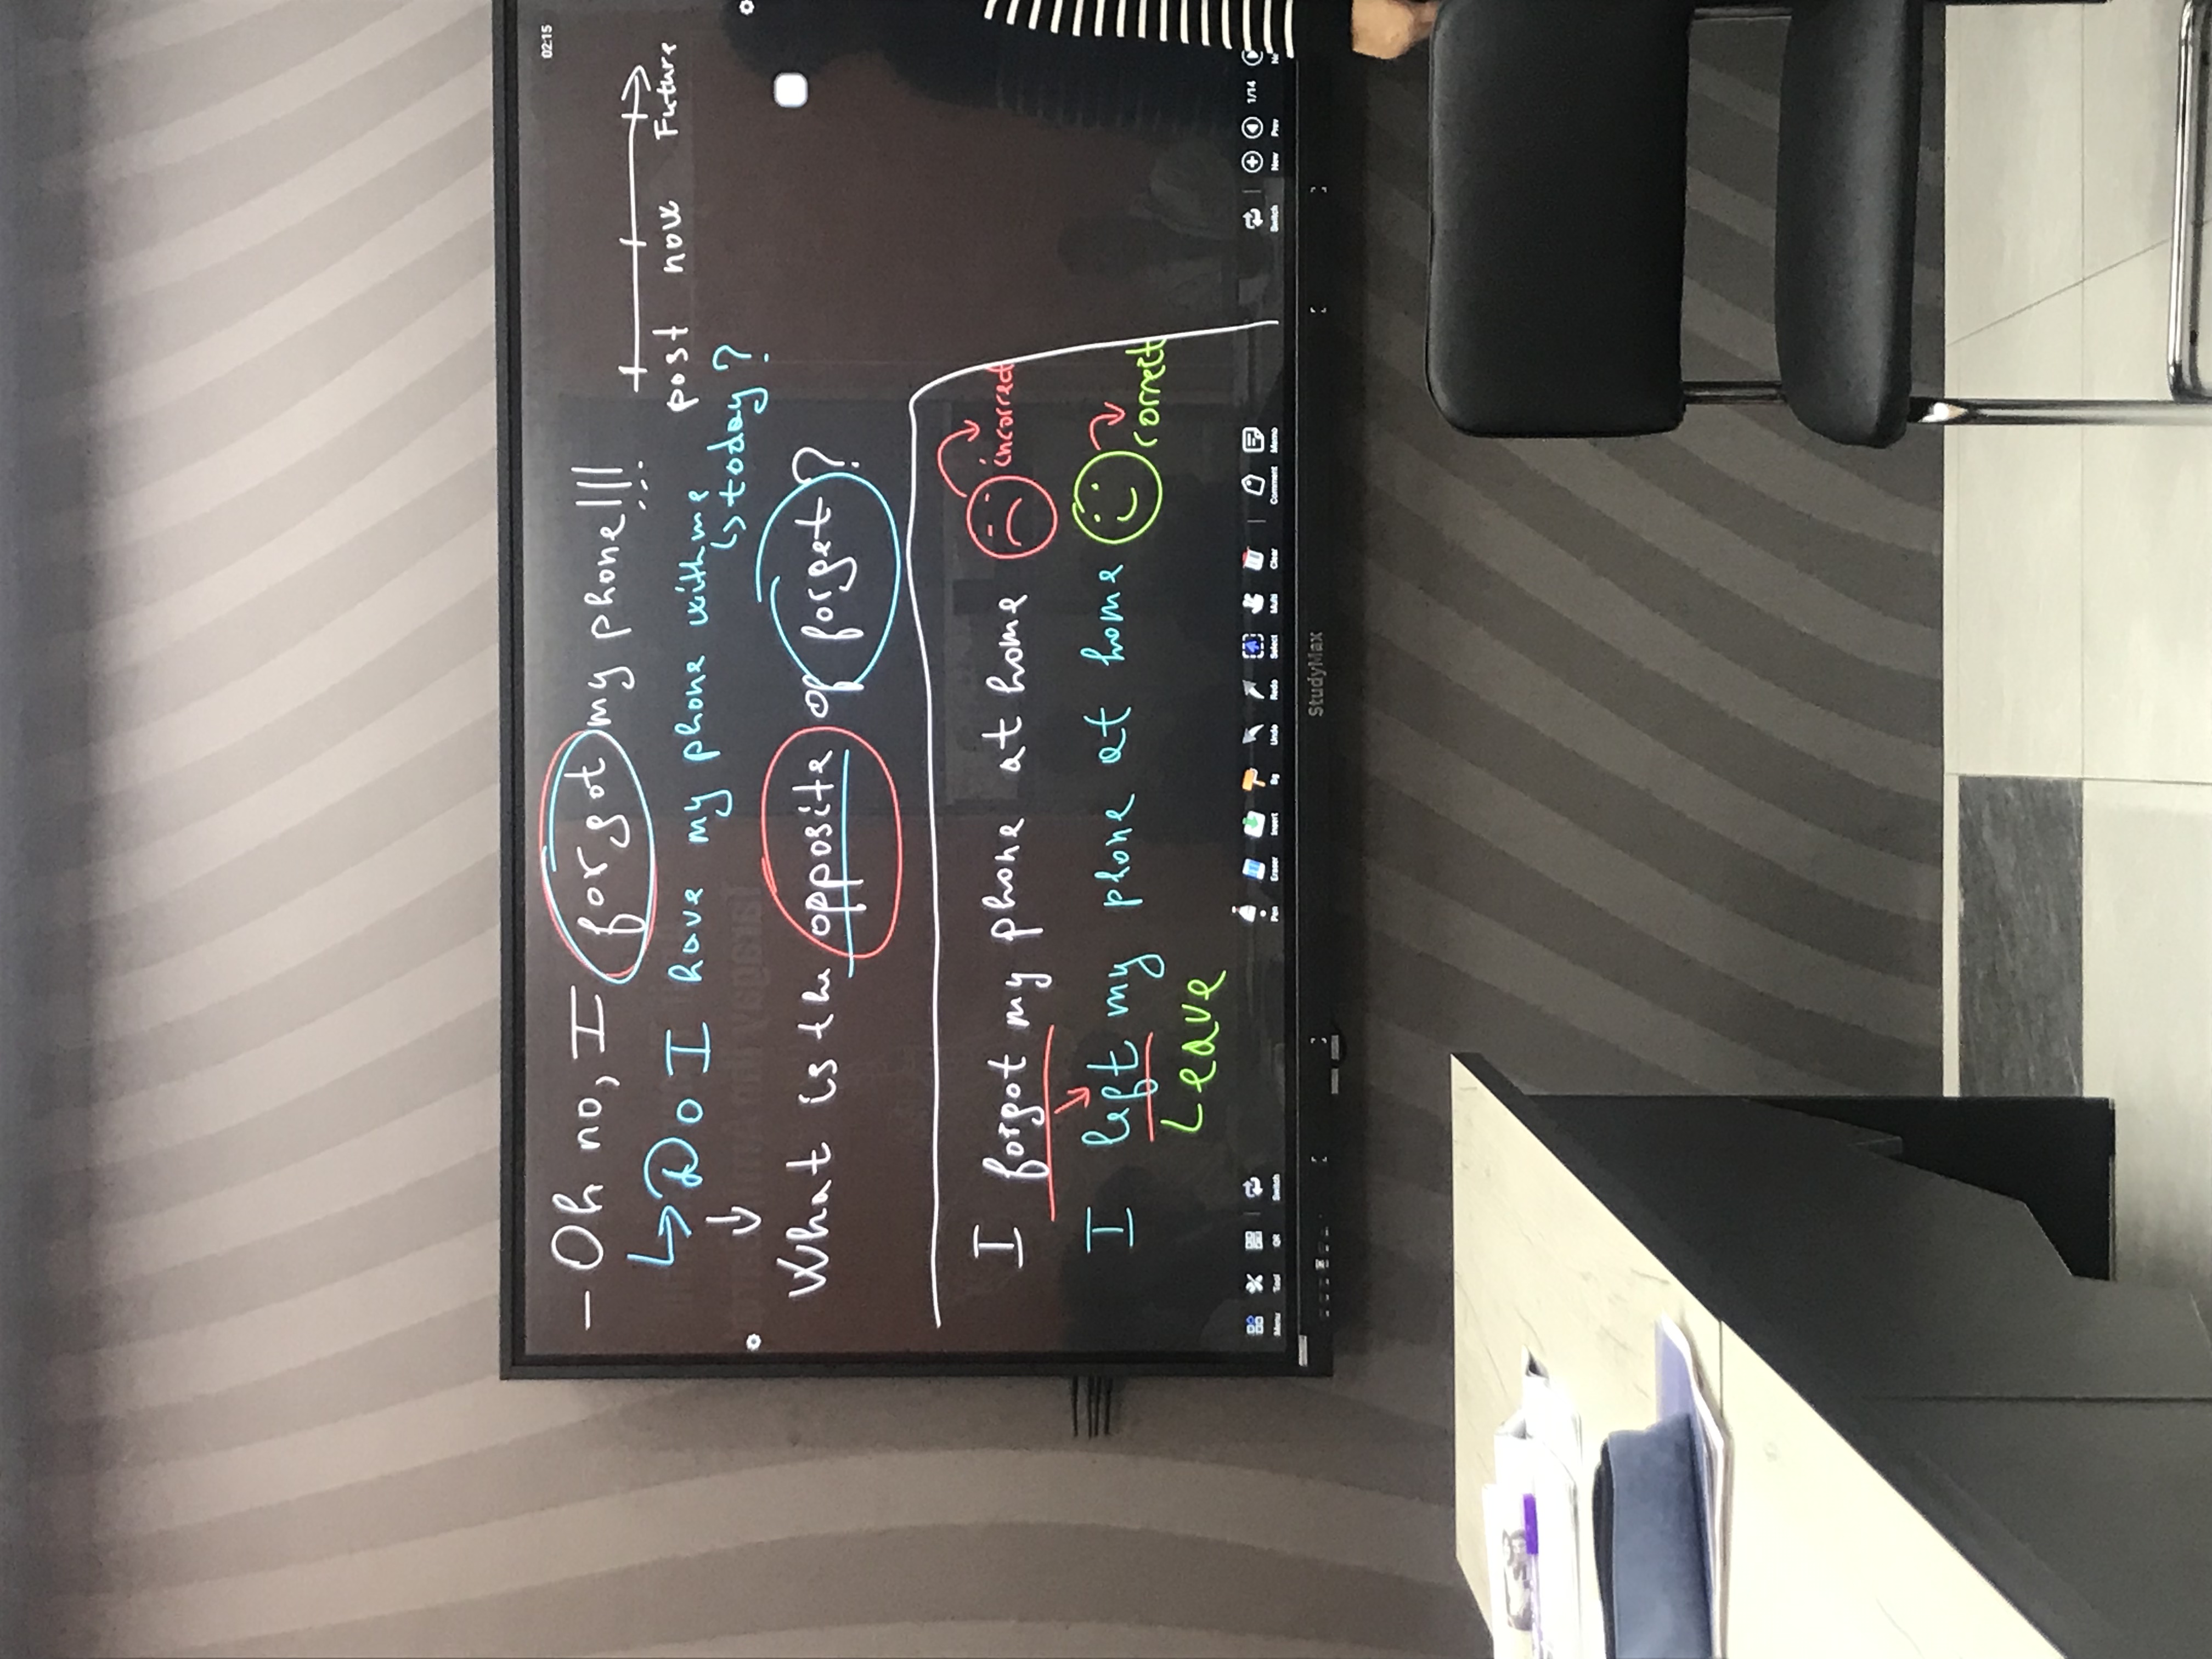 02:15
– Oh no, I forgot my phone!!!
post now Future
Do I have my phone with me
today?
What is the opposite of forget?
I forgot my phone at home
incorrect
I left my phone at home
correct
Leave
Menu Tool QR Switch Pen Eraser Insert Bg Undo Redo Select Multi Clear Comment Memo Switch New Prev 1/14
StudyMax